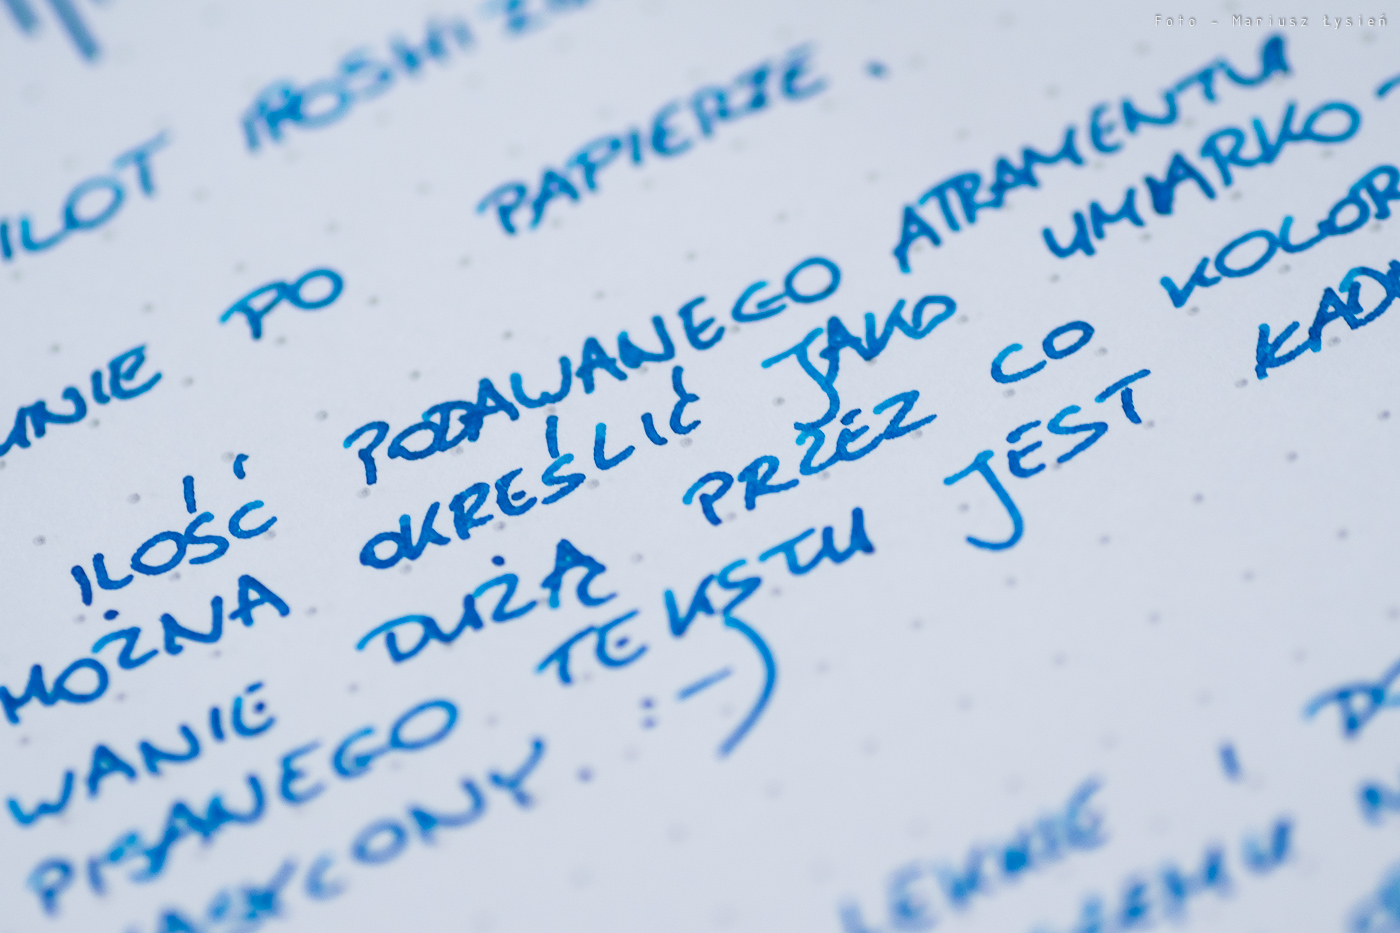 Foto - Mariusz Łysień
PILOT IROSHIZU
PO PAPIERZE.
ILOŚĆ PODAWANEGO ATRAMENTU
MOŻNA OKREŚLIĆ JAKO UMIARKO-
WANIE DUŻĄ PRZEZ CO KOLOR
PISANEGO TEKSTU JEST
:-)